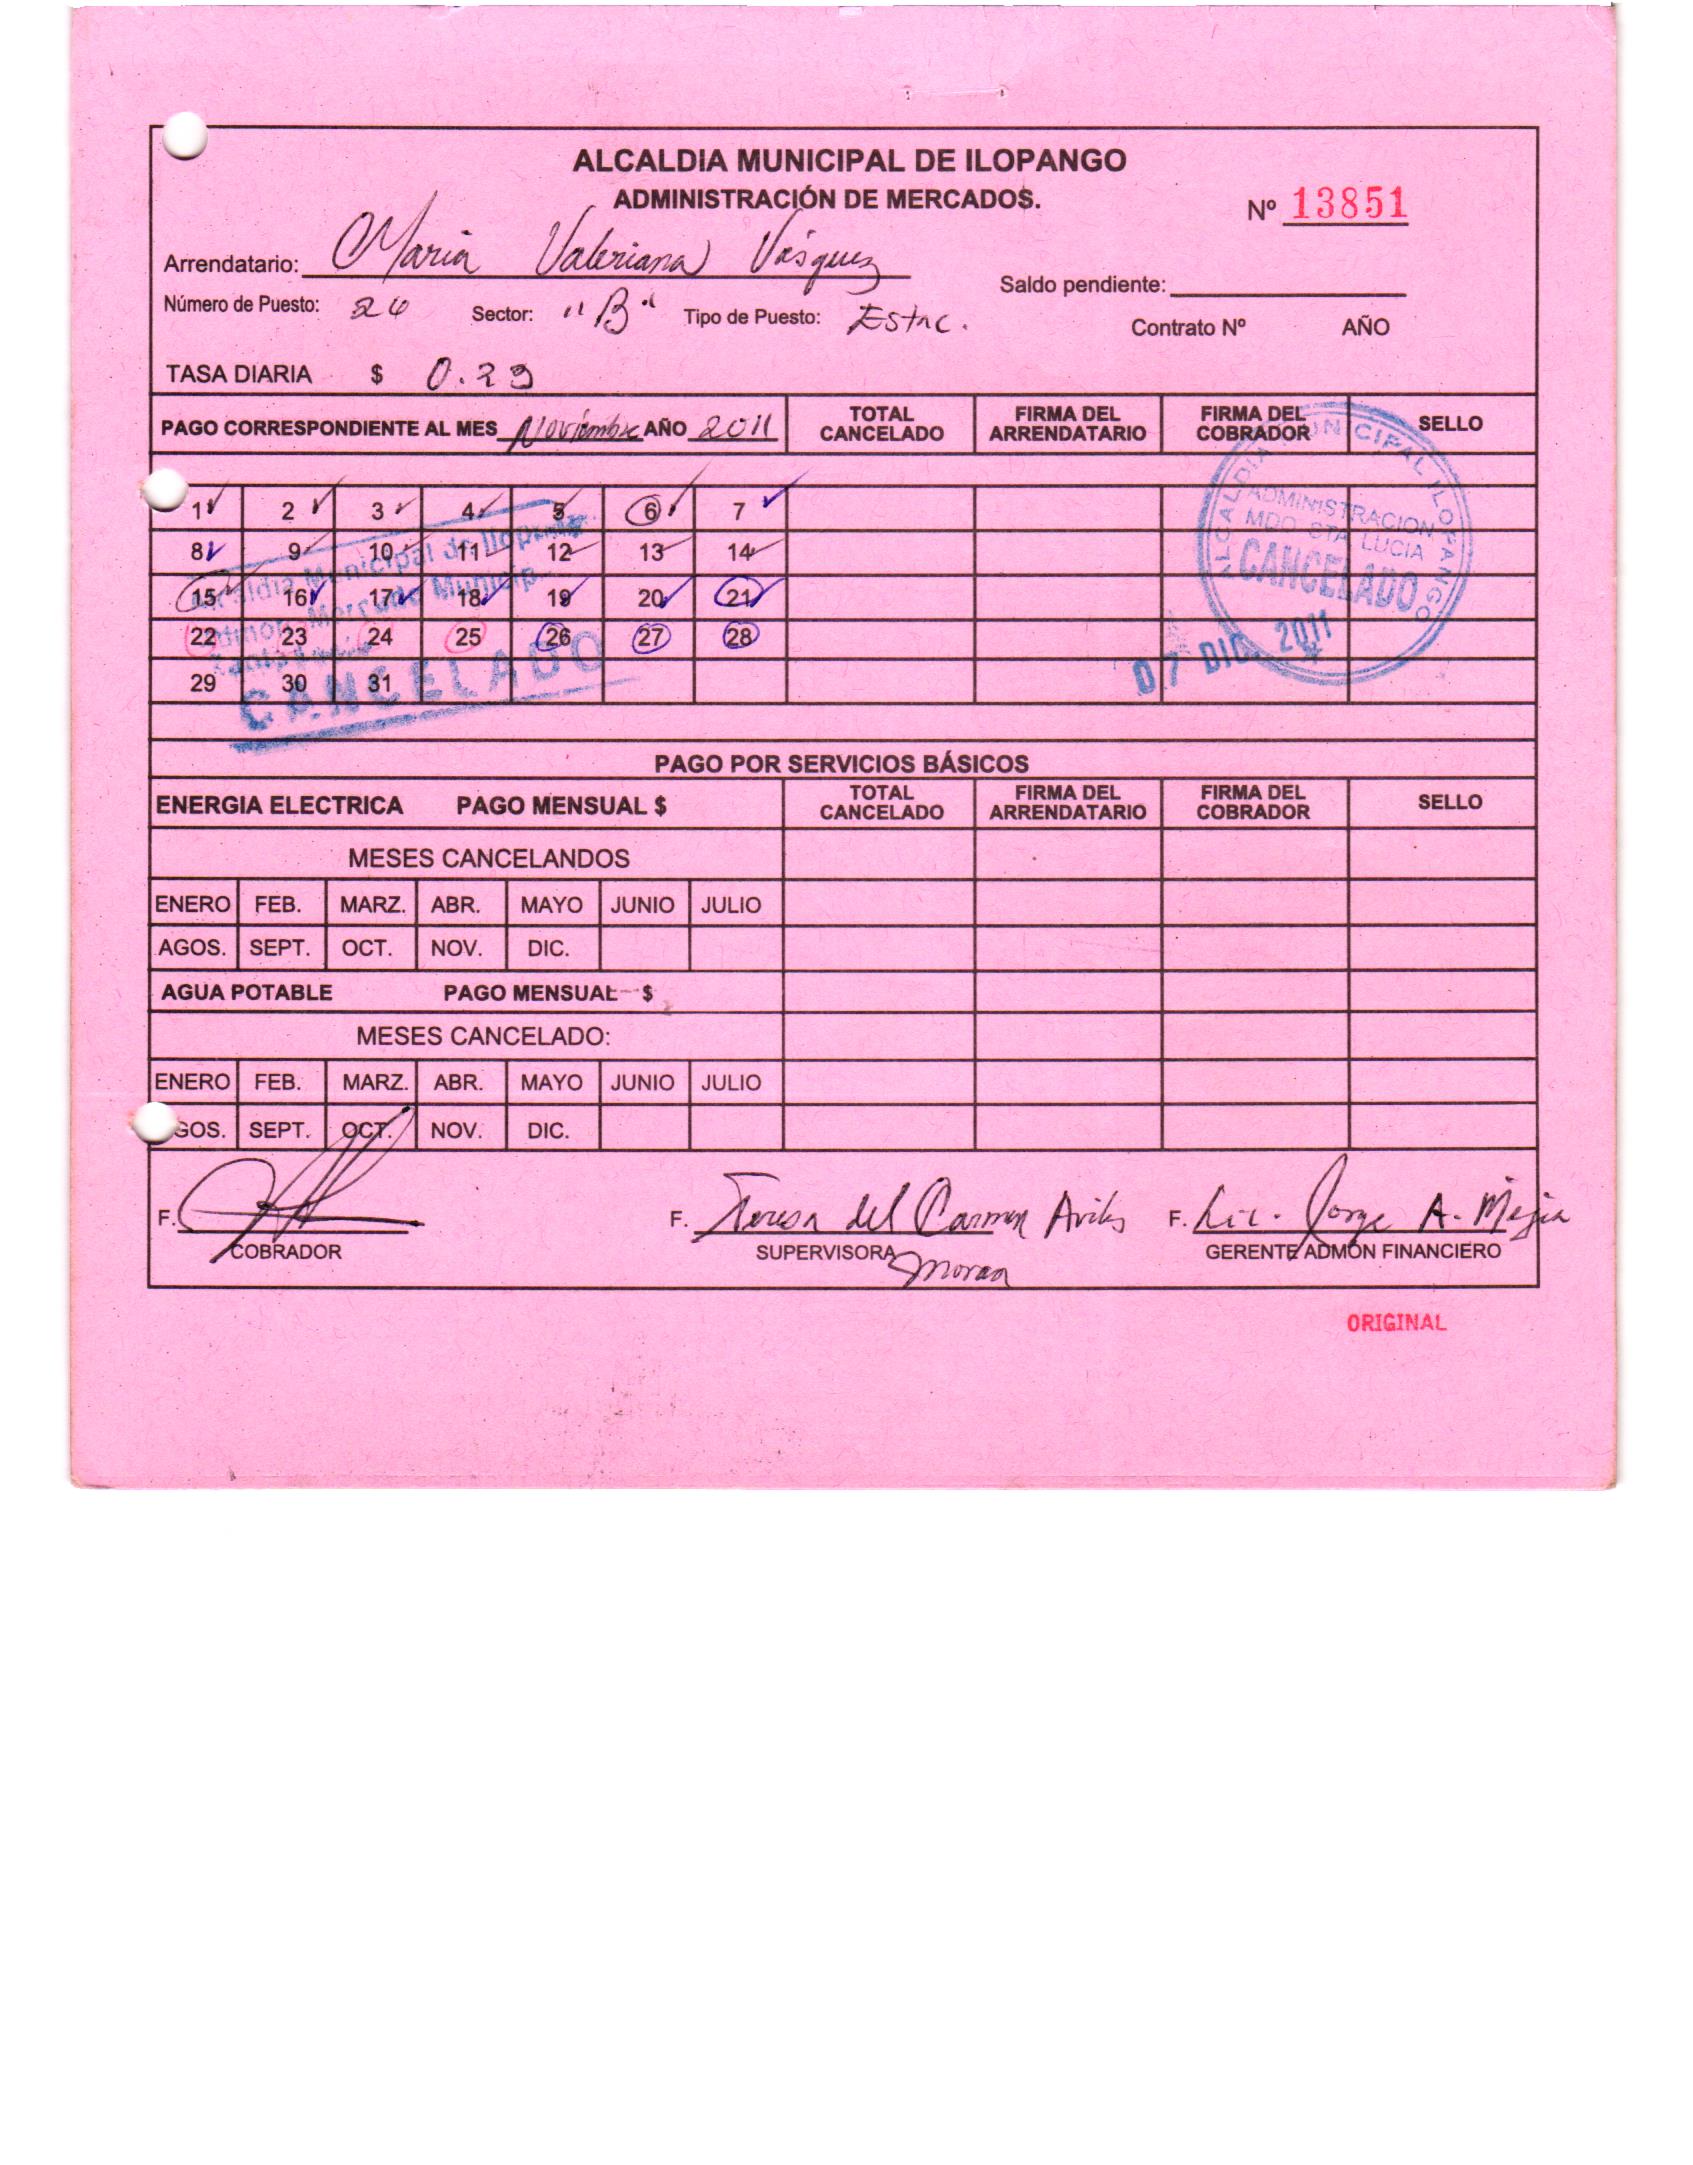 ALCALDIA MUNICIPAL DE ILOPANGO
ADMINISTRACIÓN DE MERCADOS.
Nº 13851
Arrendatario: Maria Valeriana Vásquez
Saldo pendiente:
Número de Puesto: 26 Sector: "B" Tipo de Puesto: Estac.
Contrato Nº AÑO
TASA DIARIA $ 0.29
PAGO CORRESPONDIENTE AL MES Noviembre AÑO 2011 TOTAL CANCELADO FIRMA DEL ARRENDATARIO FIRMA DEL COBRADOR SELLO
1 2 3 4 5 6 7
8 9 10 11 12 13 14
15 16 17 18 19 20 21
22 23 24 25 26 27 28
29 30 31
Alcaldia Municipal de Ilopango
Mercado Municip
CANCELADO
ALCALDIA MUNICIPAL ILOPANGO
ADMINISTRACION
MDO. STA. LUCIA
CANCELADO
07 DIC. 2011
PAGO POR SERVICIOS BÁSICOS
ENERGIA ELECTRICA PAGO MENSUAL $ TOTAL CANCELADO FIRMA DEL ARRENDATARIO FIRMA DEL COBRADOR SELLO
MESES CANCELANDOS
ENERO FEB. MARZ. ABR. MAYO JUNIO JULIO
AGOS. SEPT. OCT. NOV. DIC.
AGUA POTABLE PAGO MENSUAL $
MESES CANCELADO:
ENERO FEB. MARZ. ABR. MAYO JUNIO JULIO
GOS. SEPT. OCT. NOV. DIC.
F. F. Teresa del Carmen Aviles F. Lic. Jorge A. Mejia
COBRADOR SUPERVISORA GERENTE ADMON FINANCIERO
Moran
ORIGINAL